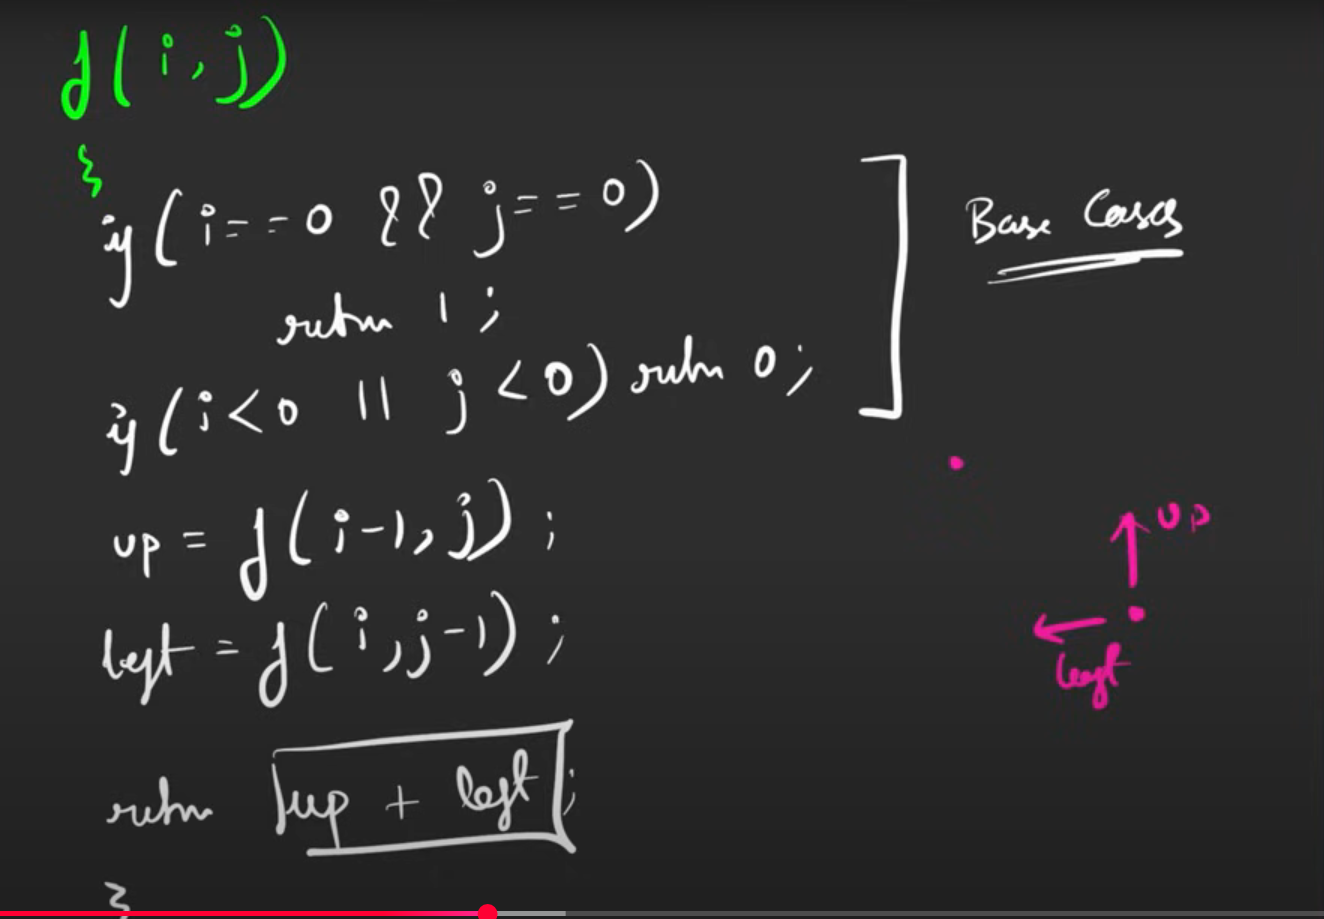 f(i,j)
{
if(i==0 && j==0)
return 1;
if(i<0 || j<0) return 0;
Base Cases
up = f(i-1,j);
left = f(i,j-1);
up
left
return up + left;
}